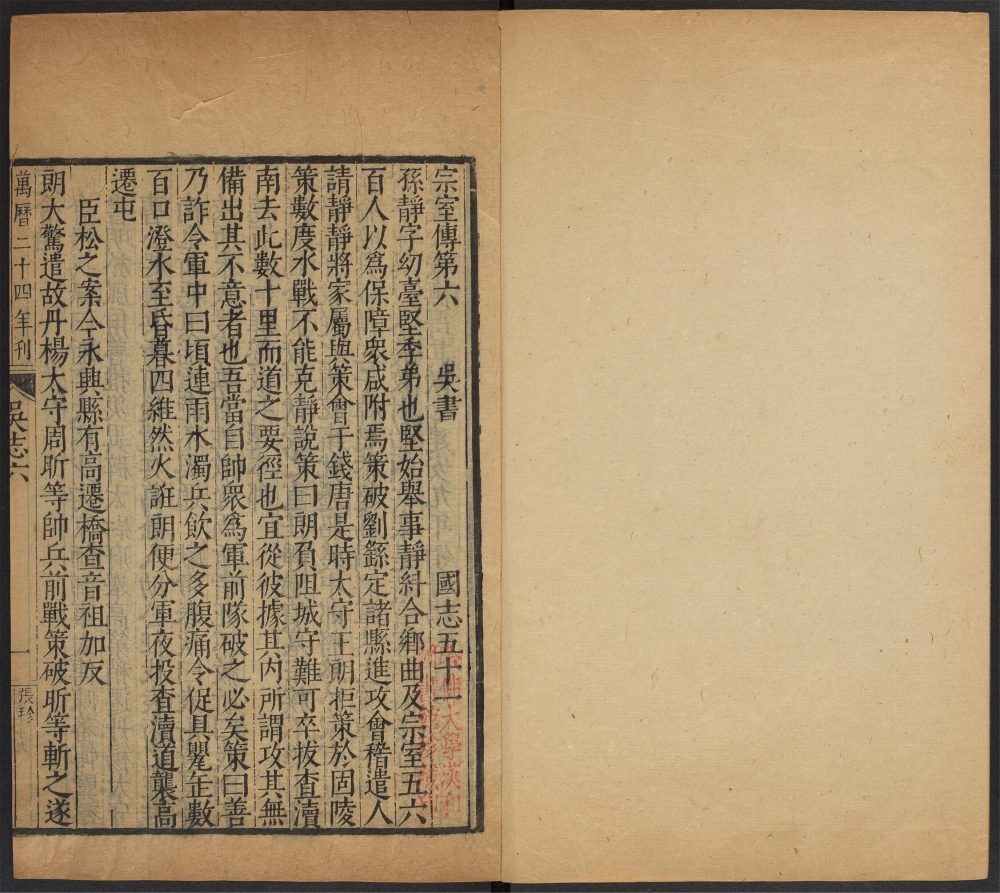 宗室傳第六 吳書 國志五十一
孫靜字幼臺堅季弟也堅始舉事靜糾合鄉曲及宗室五六
百人以爲保障衆咸附焉策破劉繇定諸縣進攻會稽遣人
請靜靜將家屬與策會于錢唐是時太守王朗拒策於固陵
策數度水戰不能克靜說策曰朗負阻城守難可卒拔查瀆
南去此數十里而道之要徑也宜從彼據其內所謂攻其無
備出其不意者也吾當自帥衆爲軍前隊破之必矣策曰善
乃詐令軍中曰頃連雨水濁兵飲之多腹痛令促具甖缶數
百口澄水至昏暮四維然火誑朗便分軍夜投查瀆道襲高
遷屯
臣松之案今永興縣有高遷橋查音祖加反
朗大驚遣故丹楊太守周昕等帥兵前戰策破昕等斬之遂
萬曆二十四年刊 吳志六 一 張珍